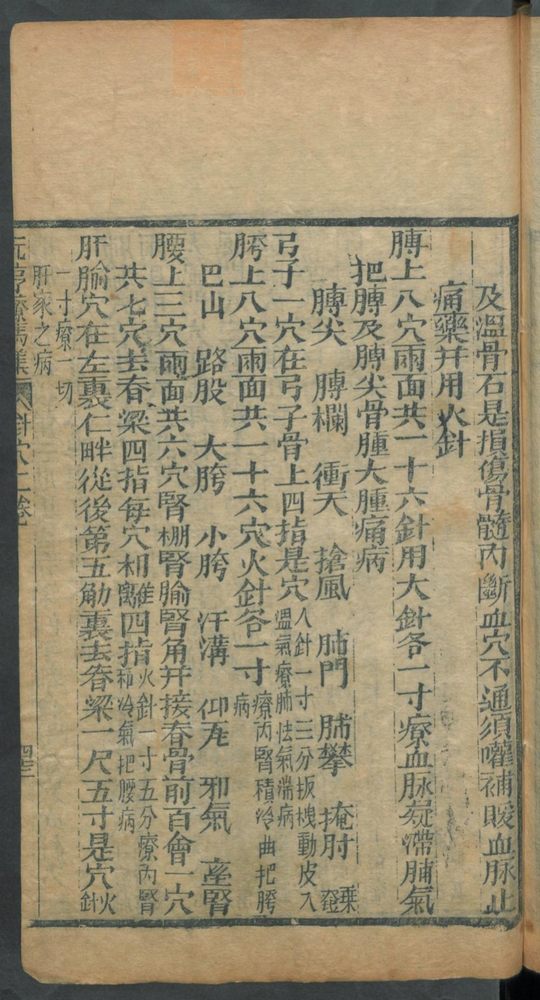 及溫骨石是損傷骨髓內斷血穴不通須嚾補暖血脉止
痛藥并用火針
膊上八穴兩面共一十六針用大針各一寸療血脉凝滯肺氣
把膊及膊尖骨腫大腫痛病
膊尖 膊欄 衝天 搶風 肺門 肺攀 掩肘 乗
鐙
弓子一穴在弓子骨上四指是穴
入針一寸三分扳拽動皮入
溫氣療肺怯氣喘病
胯上八穴兩面共一十六穴火針各一寸
療內腎積冷曲把胯
病
巴山 路股 大胯 小胯 汗溝 仰瓦 邪氣 產腎
腰上三穴兩面共六穴腎棚腎腧腎角并接脊骨前百會一穴
共七穴去脊梁四指每穴相離四指
火針一寸五分療內腎
冷氣把腰病
肝腧穴在左裏仁畔從後第五肋裏去脊梁一尺五寸是穴
火
針
一寸療一切
肝家之病
元亨療馬集
針穴二卷